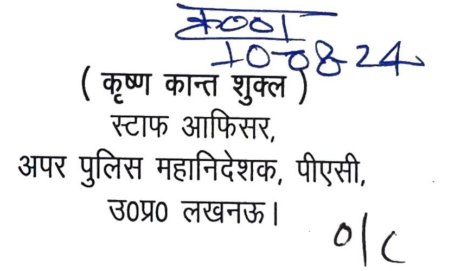 10-08-24
( कृष्ण कान्त शुक्ल )
स्टाफ आफिसर,
अपर पुलिस महानिदेशक, पीएसी,
उ0प्र0 लखनऊ।
O/C